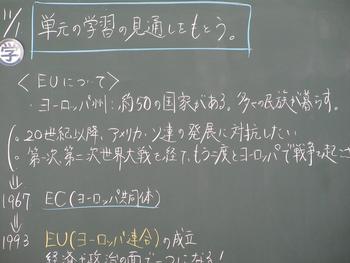 11/1
学 単元の学習の見通しをもとう。
〈EUについて〉
・ヨーロッパ州:約50の国家がある。多くの民族が暮らす。
・20世紀以降、アメリカ、ソ連の発展に対抗したい
・第一次、第二次世界大戦を経て、もう二度とヨーロッパで戦争を起こ
⇓
1967 EC(ヨーロッパ共同体)
⇓
1993 EU(ヨーロッパ連合)の成立
経済や政治の面で一つになる!